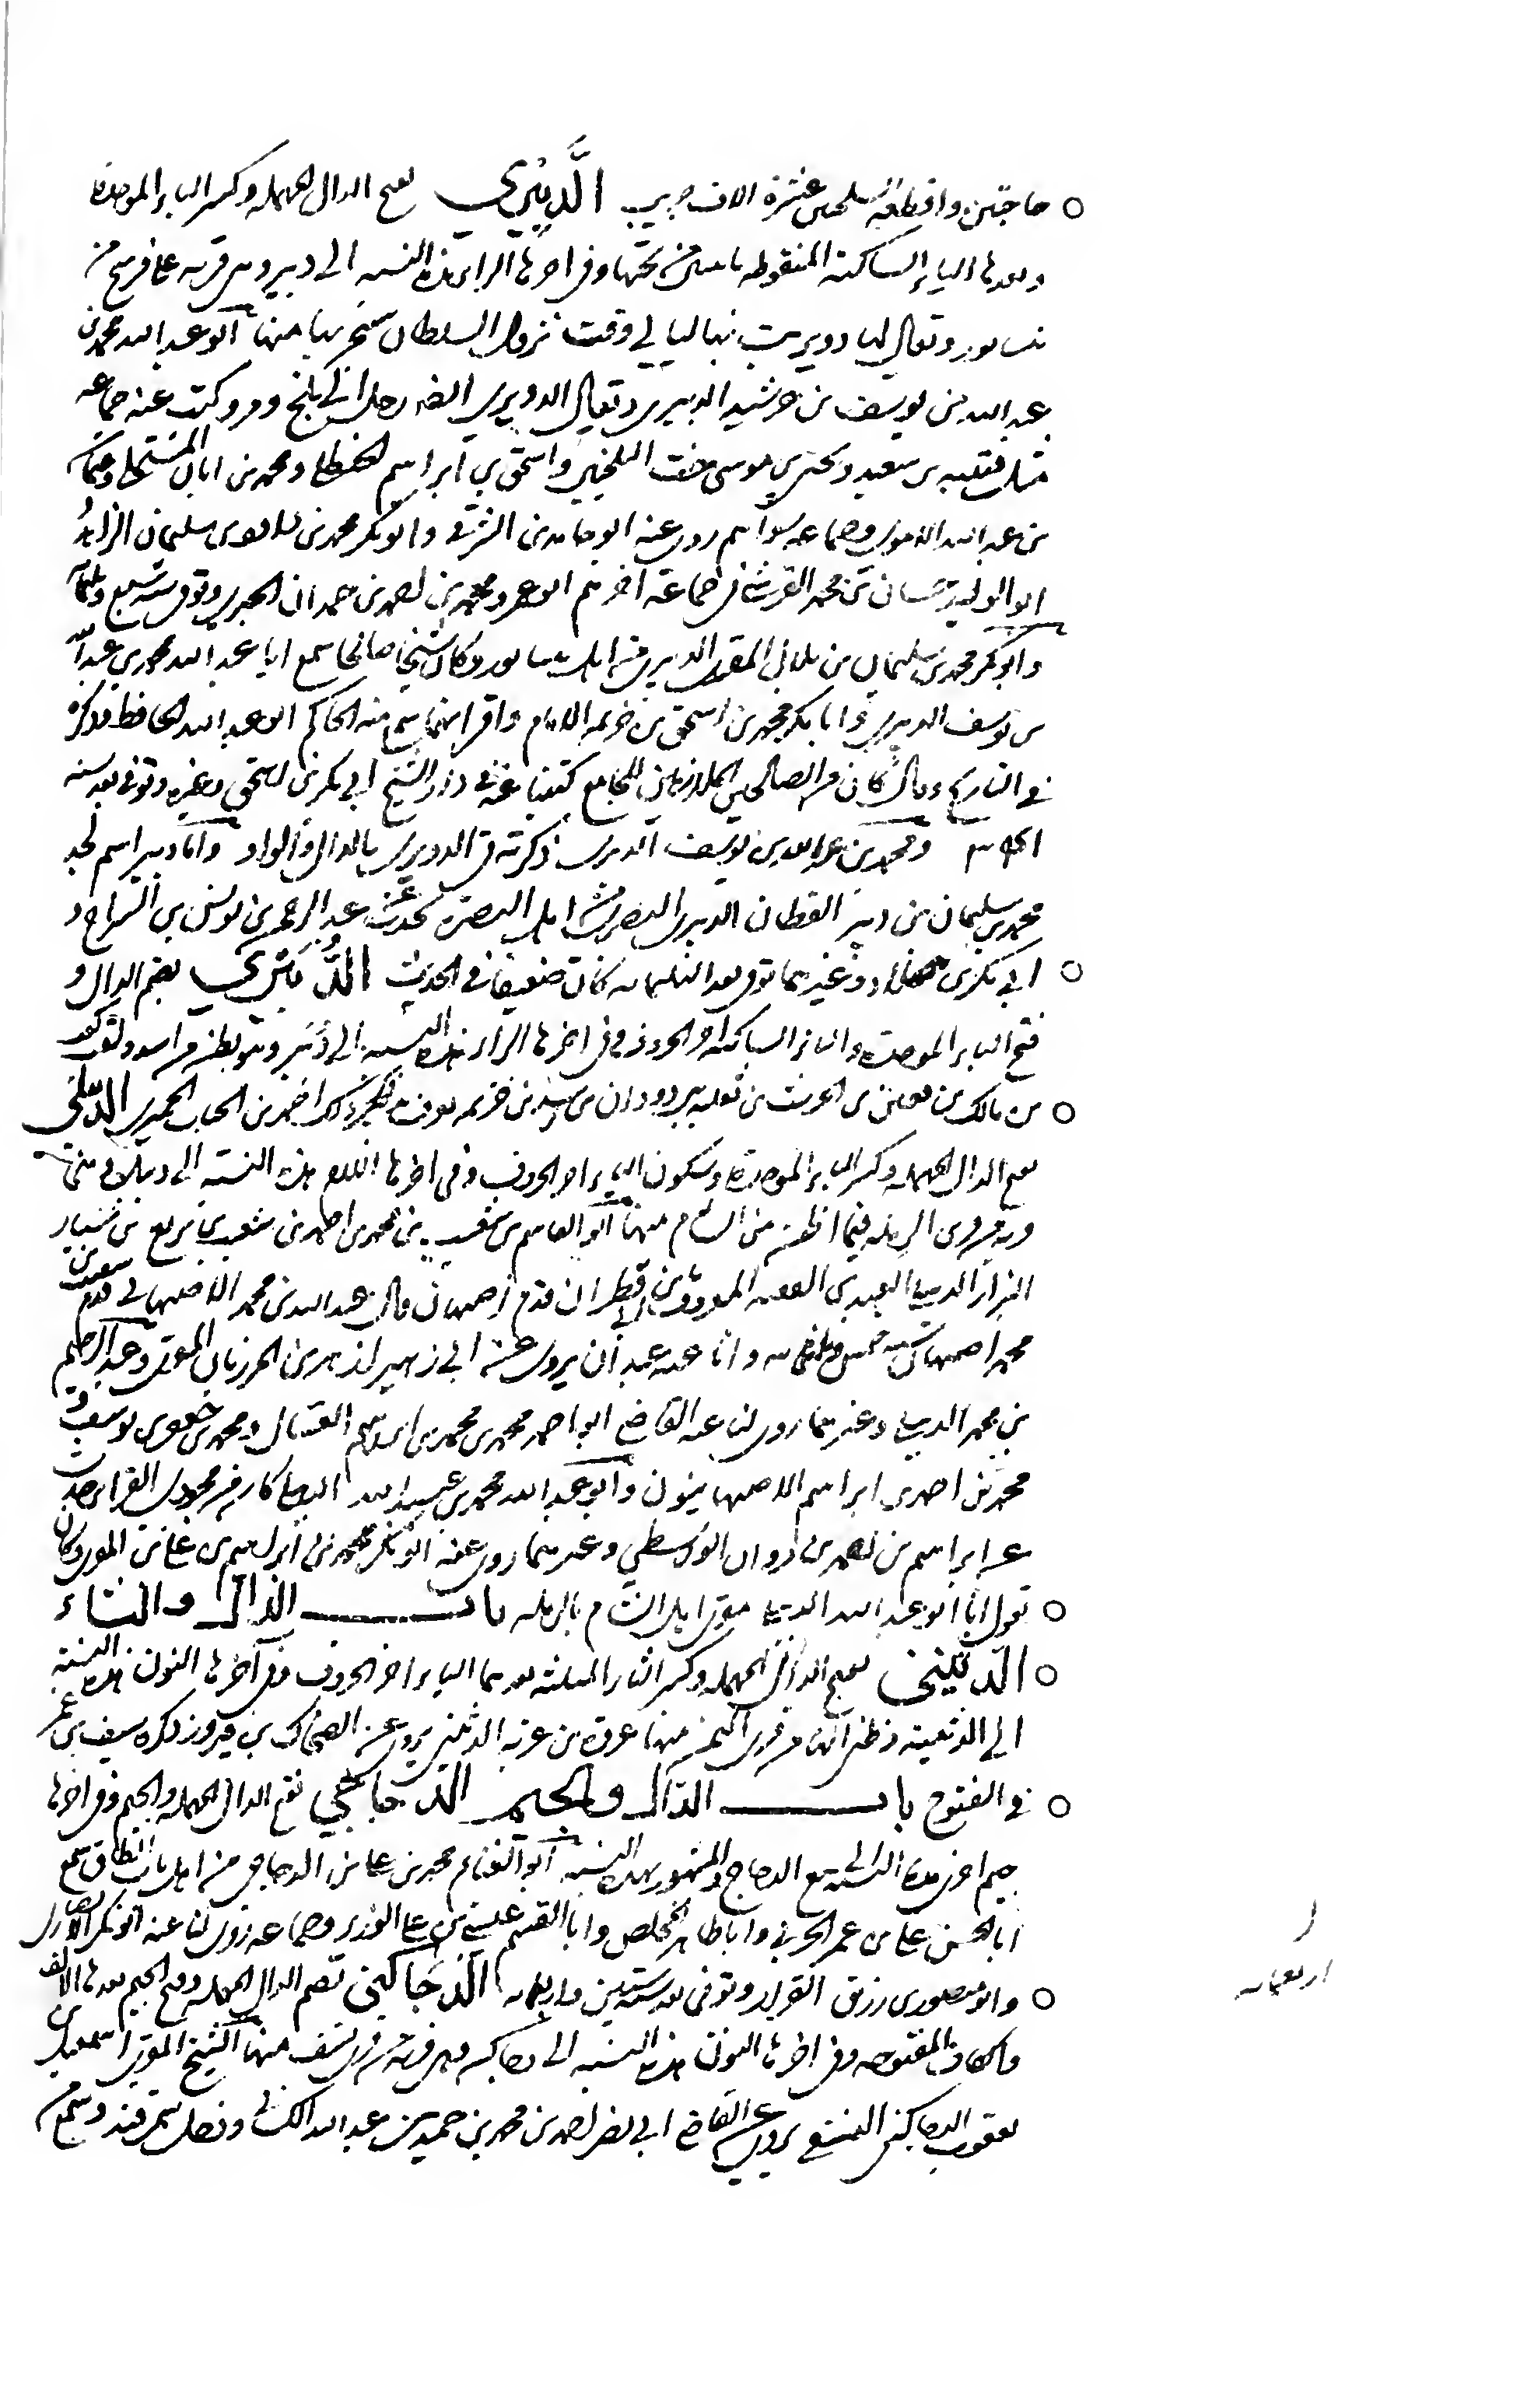 حاجتين واقطعه سلمين عشرة الاف جريب الدَّبِيْري بفتح الدال المهملة وكسر الباء الموحدة
وبعدها الياء الساكنة المنقوطه باثنتين من تحتها وفي اخرها الراء هذه النسبه الى دبير وهي قريه على فرسخ من
نيسابور ويقال لها دوير بت بها ليالي وقت نزول السلطان سنجر بها منها ابو عبد الله محمد بن
عبد الله بن يوسف بن خرشيد الدبيري ويقال الدويري ايضا رحل الى بلخ ومرو كتب عنه جماعه
مثل قتيبه بن سعيد ويحيى بن موسى خت البلخيين واسحق بن ابراهيم الحنظلي ومحمد بن ابان المستملي وعمار
بن عبد الله الاموي وجماعه سواهم روى عنه ابو حامد بن الشرقي وابو بكر محمد بن داود بن سليمان الزاهد
ابو الوليد حسان بن محمد القرشي في جماعة اخرهم ابو عمرو محمد بن احمد بن حمدان الحيري وتوفي سنة سبع وثلثمائة
وابو بكر محمد بن سليمان بن بلال المقري الدبيري من اهل نيسابور وكان شيخا صالحا سمع ابا عبد الله محمد بن عبد الله
بن يوسف الدبيري وابا بكر محمد بن اسحق بن خزيمه الامام واقرانهما سمع منه الحاكم ابو عبد الله الحافظ وذكره
في التاريخ وقال كان من الصالحين الملازمين للجامع كتبنا عنه في دار الشيخ ابي بكر بن اسحق وغيره وتوفي بعد سنه
ومحمد بن عبد الله بن يوسف الدبيري ذكرته في الدويري بالدال والواو واما دبير اسم لجد
محمد بن سليمان بن دبير القطان الدبيري البصري من اهل البصرة يحدث عن عبد الرحمن بن يونس بن السراج و
ابي بكر بن وغيرهما توفي بعد الثلثمائه كان ضعيفا في الحديث الدُّبَيْري بضم الدال و
فتح الباء الموحدة والياء الساكنة اخر الحروف وفي اخرها الراء هذه النسبه الى دُبَير وهو بطن من اسد ولقب كعب
بن مالك بن عمرو بن الحرث بن ثعلبه بن دودان بن اسد بن خزيمه بن ذكره احمد بن الحباب الحميري الدبيلي
بفتح الدال المهمله وكسر الباء الموحدة وسكون الياء اخر الحروف وفي اخرها اللام هذه النسبة الى دبيل
وهي قريه من قرى الرمله فيما اظن من الشام منها ابو القاسم شعيب بن محمد بن احمد بن شعيب بن بزيع بن سنان
البزاز الدبيلي العبدي الفقيه المعروف بابن ابي قطران قدم اصبهان قال عبد الله بن محمد الاصبهاني قدم سعيد بن
محمد اصبهان سنة خمس وثلثمائه وانا عنه عبدان يروي عن ابي زهير ازهر بن المرزبان المقري وعبد الرحيم
بن محمد الدبيلي وغيرهما روى لنا عنه القاضي ابو احمد محمد بن محمد بن ابراهيم العسال ومحمد بن جعفر بن يوسف و
محمد بن احمد بن ابراهيم الاصبهانيون وابو عبد الله محمد بن عبيد الله الدبيلي كان من مجودي القراء حدث
عن ابراهيم بن احمد بن مروان الواسطي وغيرهما روى عنه ابو بكر محمد بن ابراهيم بن علي بن المقري وكان
يقول انا ابو عبد الله الدبيلي مقري اهل الشام بالرمله باب الدال والثاء
الدَّثِيْنِي بفتح الدال المهمله وكسر الثاء المثلثه بعدهما الياء اخر الحروف وفي اخرها النون هذه النسبة
الى الدثينه وظني انها من قرى اليمن منها عروه بن غزيه الدثيني يروي عن الضحاك بن فيروز ذكره سيف بن عمر
في الفتوح باب الدال والجيم الدَّجَاجي بفتح الدال المهملة والجيم وفي اخرها
جيم اخرى هذه النسبه الى بيع الدجاج والمشهور بهذه النسبه ابو الغنائم محمد بن علي بن الدجاجي من اهل باب الطاق سمع
ابا الحسن علي بن عمر الحربي وابا طاهر المخلص وابا القسم عيسى بن علي الوزير وجماعه روى لنا عنه ابو بكر الانصاري
وابو منصور بن رزيق القزاز وتوفي بعد ستين واربعمائه الدُّجَاكَني بضم الدال المهمله وفتح الجيم بعدها الالف
والكاف المفتوحه وفي اخرها النون هذه النسبه الى دجاكن وهي قريه من قرى نسف منها الشيخ المقري اسمعيل بن
يعقوب الدجاكني النسفي يروي عن القاضي ابي نصر احمد بن محمد بن حميد بن عبد الله الكشاني ودخل سمرقند وسمع
اربعمائه